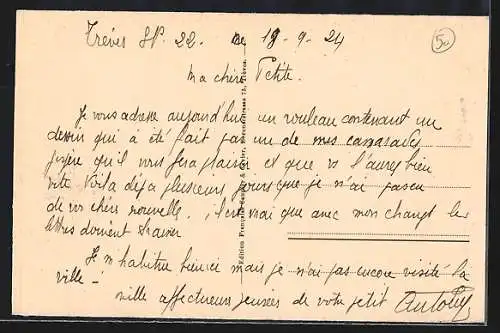 Trèves SP. 22. le 19-9-24
50
ma chère Petite.
Je vous adresse aujourd'hui un rouleau contenant un
dessin qui a été fait par un de mes camarades
j'espère qu'il vous fera plaisir et que vs l'aurez bien
vite Voilà déjà plusieurs jours que je n'ai pas eu
de vos chère nouvelle. Il est vrai que avec mon changt les
lettres doivent
Je m'habitue bien ici mais je n'ai pas encore visité la
ville -
mille affectueuses pensées de votre petit Antony
Edition Française